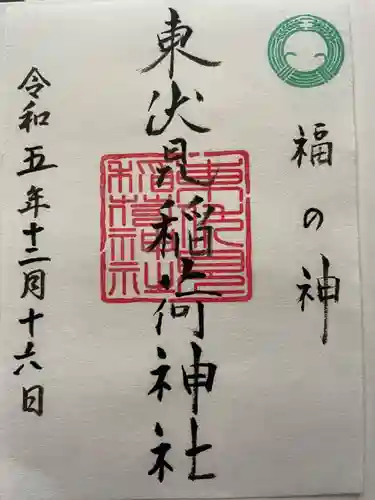 福の神
東伏見稲荷神社
令和五年十二月十六日